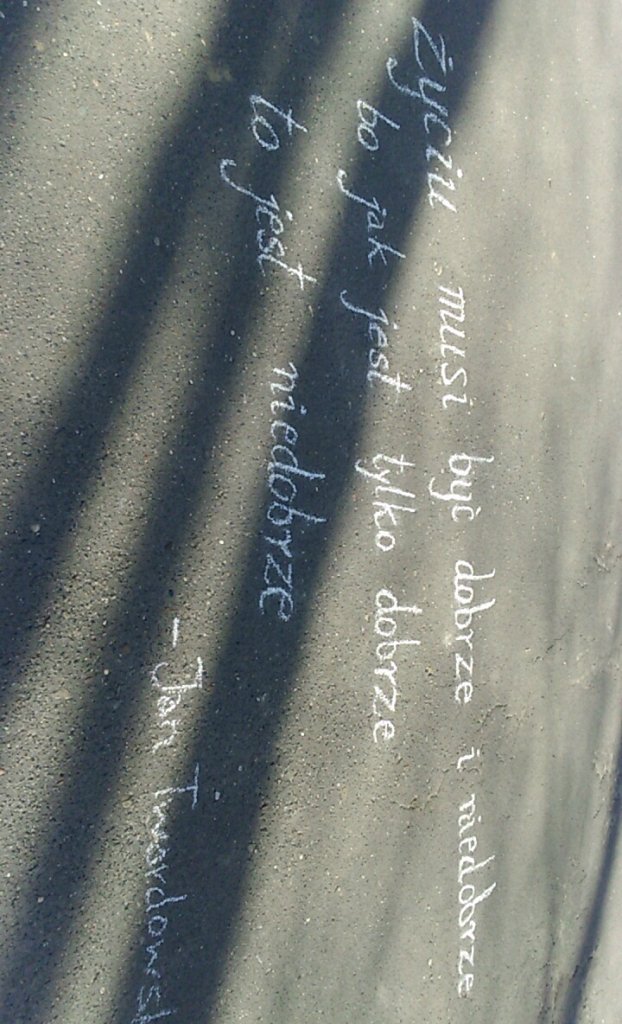 życiu musi być dobrze i niedobrze
bo jak jest tylko dobrze
to jest niedobrze
- Jan Twardowsk